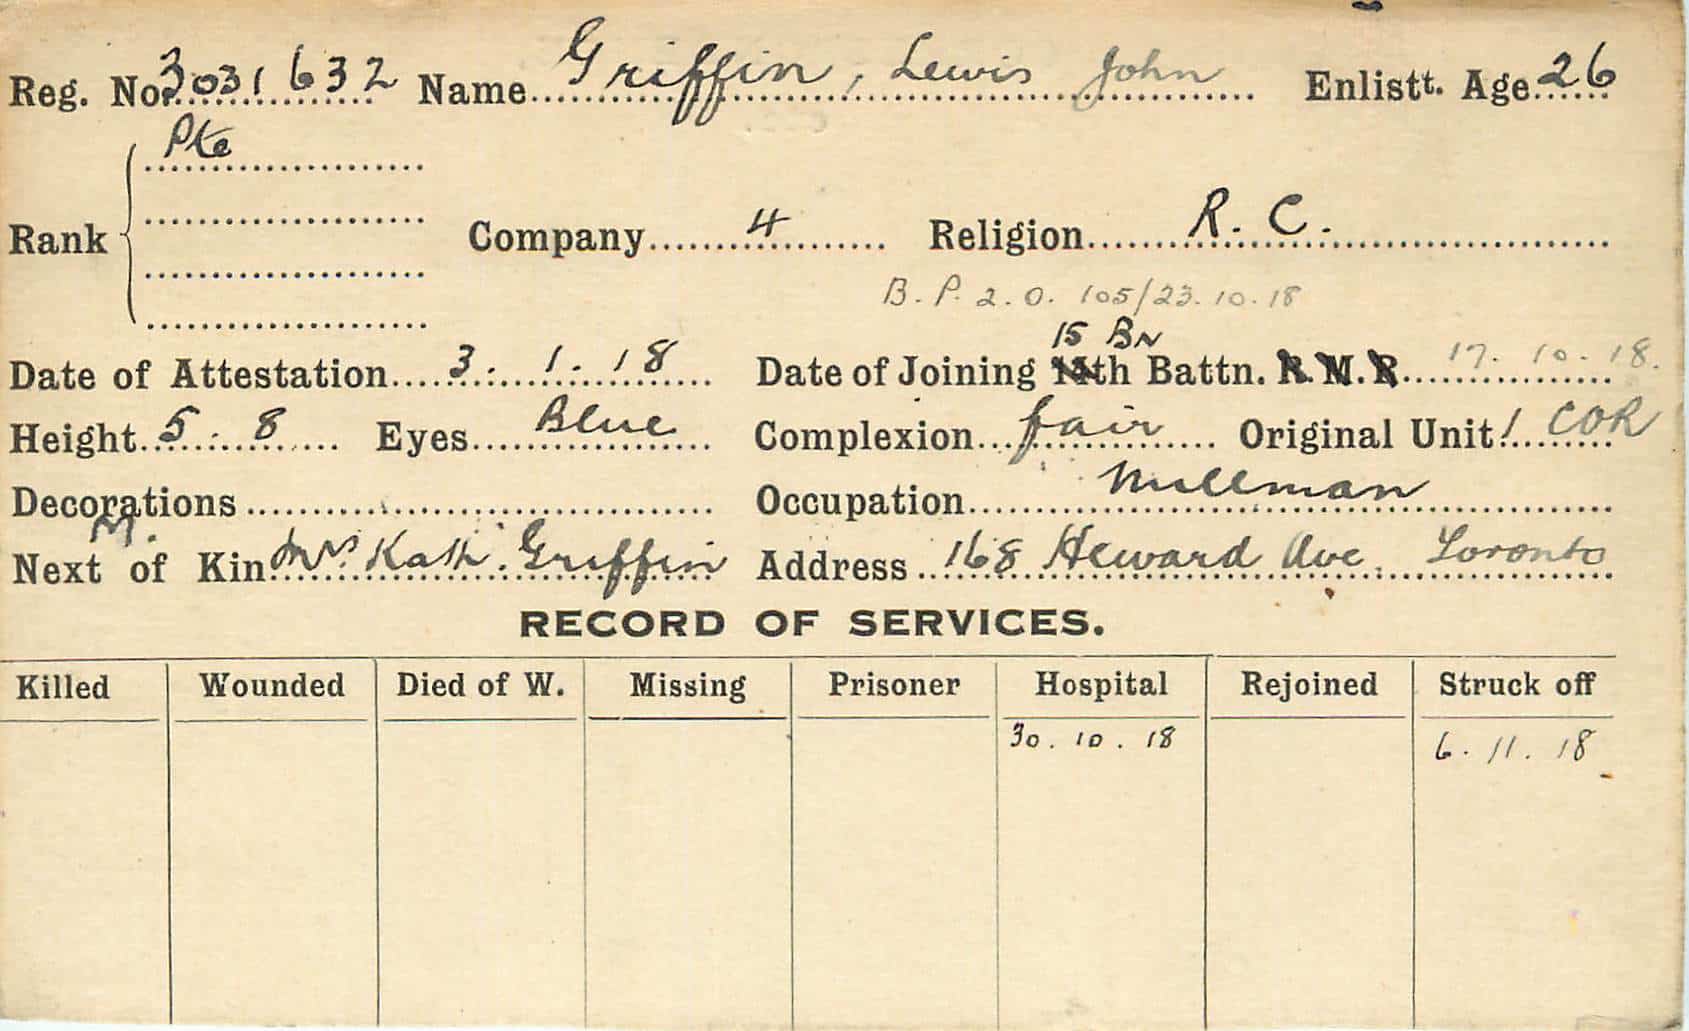 Reg. No. 3031632 Name Griffin, Lewis John Enlistt. Age 26
Pte
Rank Company 4 Religion R. C.
B. P. 2. O. 105/23.10.18
15 Bn
Date of Attestation 3. 1. 18 Date of Joining 14th Battn. R.M.R. 17. 10. 18.
Height 5. 8 Eyes Blue Complexion fair Original Unit 1 COR
Decorations Occupation Millman
M.
Next of Kin Mrs Kath. Griffin Address 168 Heward Ave. Toronto
RECORD OF SERVICES.
Killed Wounded Died of W. Missing Prisoner Hospital Rejoined Struck off
30. 10. 18 6. 11. 18